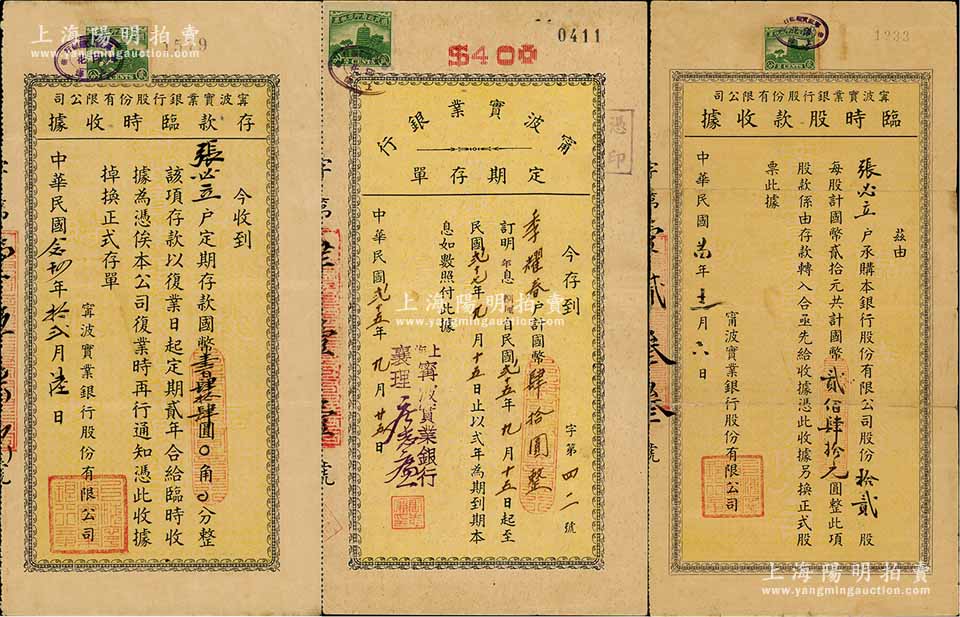 1559
甯波實業銀行股份有限公司
存款臨時收據
今收到
張必立户定期存款國幣壹百肆拾肆圓〇角〇分整
該項存款以復業日起定期貳年合給臨時收
據為憑俟本公司復業時再行通知憑此收據
掉換正式存單
甯波實業銀行股份有限公司
中華民國念四年拾弍月 日
0411
$400
憑印
甯波實業銀行
定期存單
今存到
李耀春户計國幣肆拾圓整
訂明年息 自民國弍五年九月十五日起至
民國弍七年九月十五日止以弍年為期到期本
息如數照付此據
字第四二號
上海甯波實業銀行
襄理
中華民國弍五年九月廿五日
1233
甯波實業銀行股份有限公司
臨時股款收據
茲由
張必立户承購本銀行股份有限公司股份拾貳股
每股計國幣貳拾元共計國幣貳佰肆拾元圓整此項
股款係由存款轉入合亟先給收據憑此收據另換正式股
票此據
甯波實業銀行股份有限公司
中華民國 年 月六日
上海陽明拍賣
www.yangmingauction.com
上海陽明拍賣
上海陽明拍賣
www.yangmingauction.com